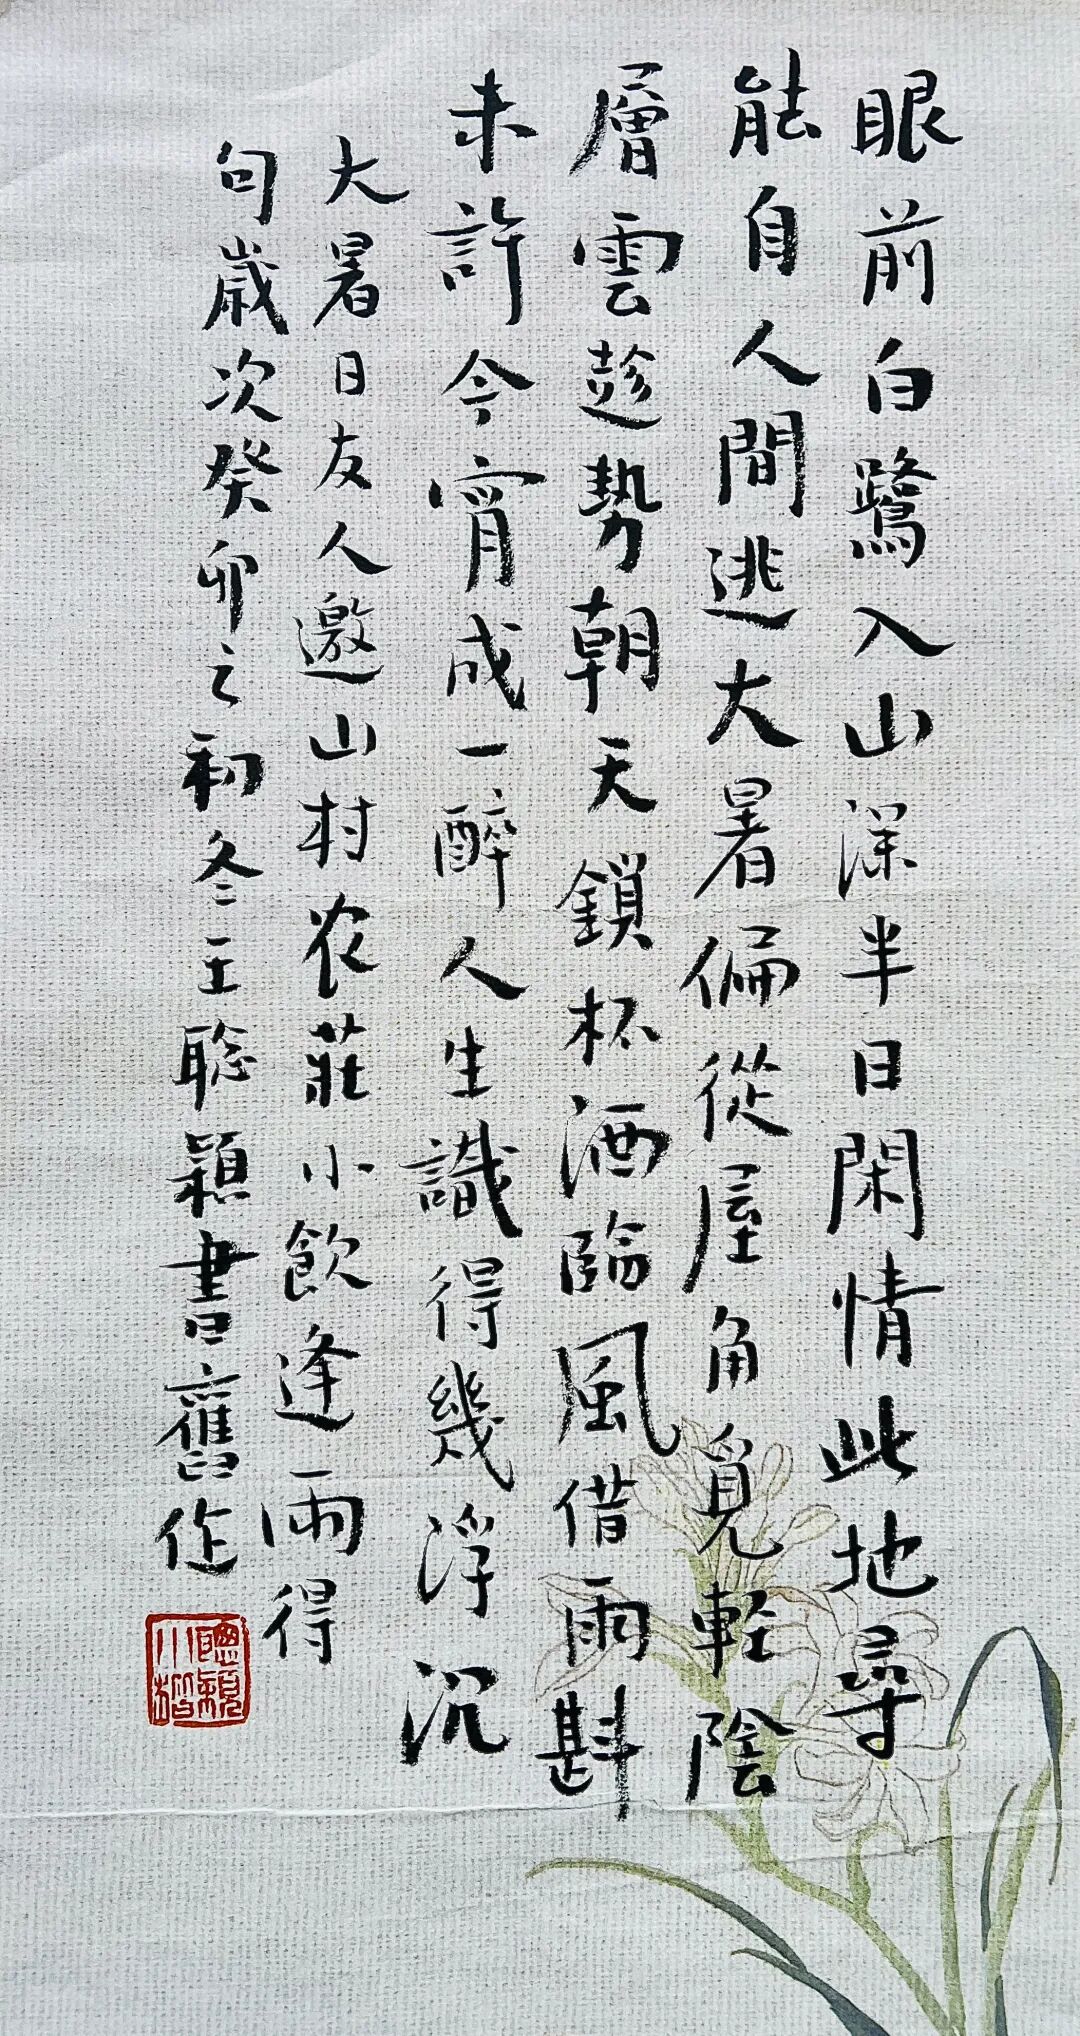 眼前白鷺入山深半日閑情此地尋
能自人間逃大暑偏從屋角覓輕陰
層雲趁勢朝天鎖杯酒臨風借雨斟
未許今宵成一醉人生識得幾浮沉
大暑日友人邀山村农莊小飲逢雨得
句歲次癸卯之初冬王聪穎書舊作